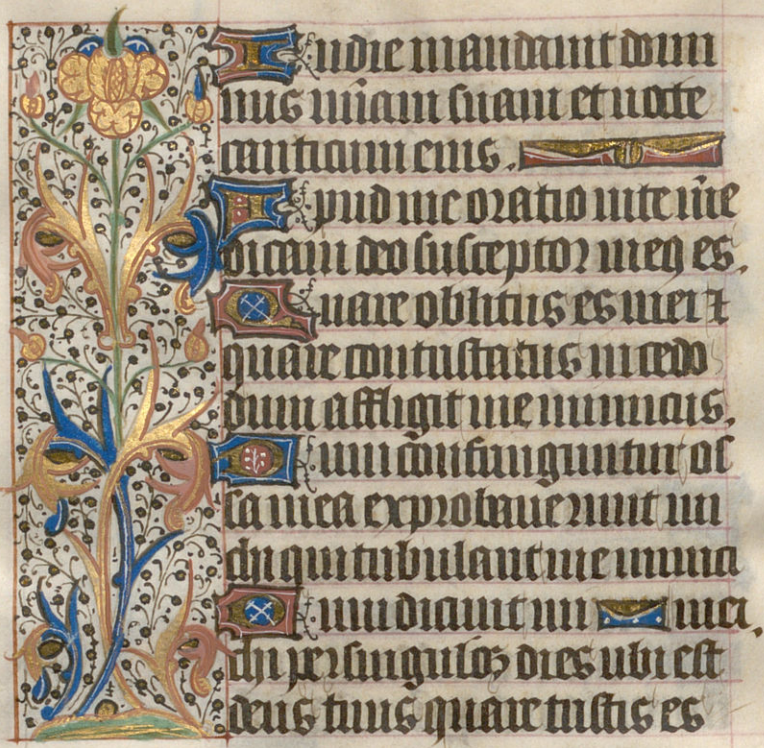 In die mandavit domi
nus miam suam et nocte
canticum eius.
Apud me oratio vite mee
dicam deo susceptor meus es.
Quare oblitus es mei et
quare contristatus incedo
dum affligit me inimicus.
Dum confringuntur os
sa mea exprobaverunt mi
chi qui tribulant me inimici
Dum dicunt mi mei.
chi per singulos dies ubi est
deus tuus quare tristis es